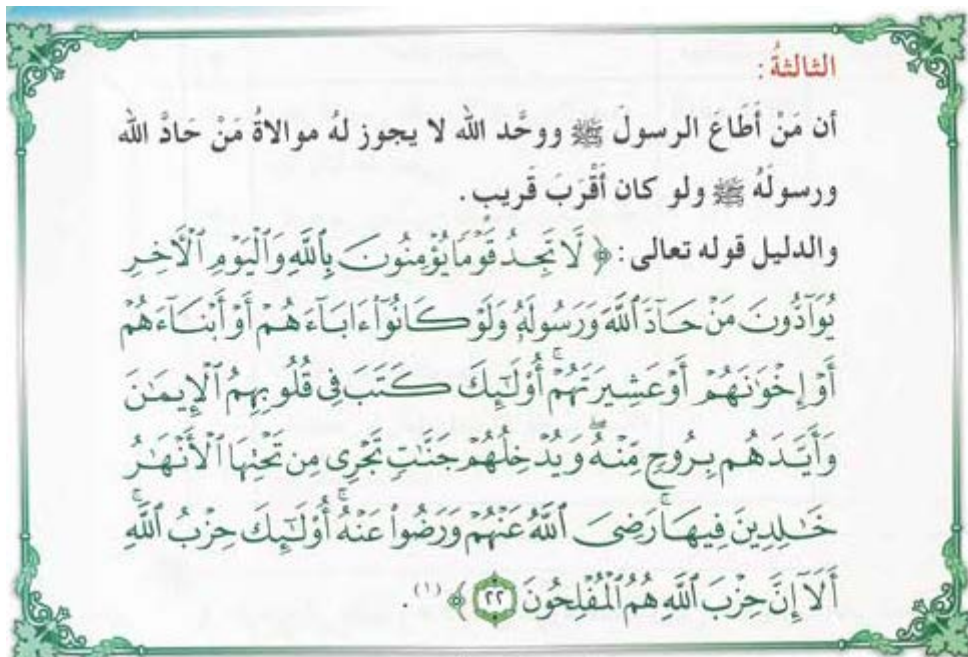 الثالثةُ:
أن مَنْ أَطَاعَ الرسولَ ﷺ ووحَّد الله لا يجوز لهُ موالاةُ مَنْ حَادَّ الله
ورسولَهُ ﷺ ولو كان أَقْرَبَ قَريب.
والدليل قوله تعالى: ﴿ لَّا تَجِدُ قَوْمًا يُؤْمِنُونَ بِٱللَّهِ وَٱلْيَوْمِ ٱلْأٓخِرِ
يُوَآدُّونَ مَنْ حَآدَّ ٱللَّهَ وَرَسُولَهُۥ وَلَوْ كَانُوٓا۟ ءَابَآءَهُمْ أَوْ أَبْنَآءَهُمْ
أَوْ إِخْوَٰنَهُمْ أَوْ عَشِيرَتَهُمْ ۚ أُو۟لَٰٓئِكَ كَتَبَ فِى قُلُوبِهِمُ ٱلْإِيمَٰنَ
وَأَيَّدَهُم بِرُوحٍ مِّنْهُ ۖ وَيُدْخِلُهُمْ جَنَّٰتٍ تَجْرِى مِن تَحْتِهَا ٱلْأَنْهَٰرُ
خَٰلِدِينَ فِيهَا ۚ رَضِىَ ٱللَّهُ عَنْهُمْ وَرَضُوا۟ عَنْهُ ۚ أُو۟لَٰٓئِكَ حِزْبُ ٱللَّهِ ۚ
أَلَآ إِنَّ حِزْبَ ٱللَّهِ هُمُ ٱلْمُفْلِحُونَ ٢٢ ﴾ (١).